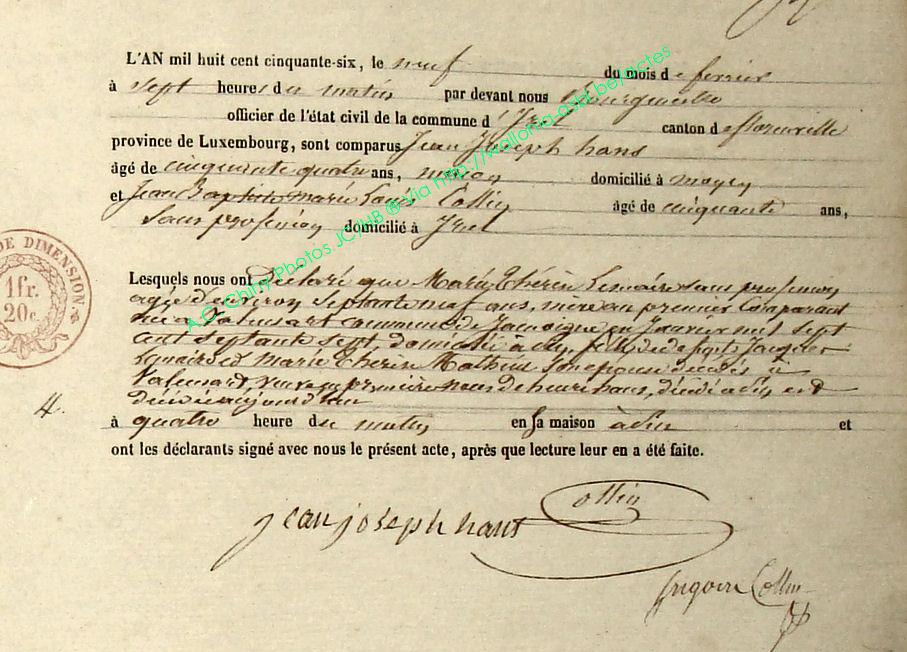 L'AN mil huit cent cinquante-six, le neuf du mois de fevrier
à sept heures du matin par devant nous
officier de l'état civil de la commune d'Izel canton de florenville
province de Luxembourg, sont comparus Jean Joseph hans
âgé de cinquante quatre ans, maçon domicilié à moyen
et Jean Baptiste marie Louis Collin âgé de cinquante ans,
Sans profession domicilié à Izel
Lesquels nous ont déclaré que Marie Thérèse Lemaire sans profession
agée d'environ septante neuf ans, mère du premier Comparant
née à Valansart commune de Jamoigne en Janvier mil sept
cent septante sept, domicilié à fille de defunts Jacques
Lemaire et Marie Thérèse Mathieu son épouse décédés à
Valansart, veuve en première noces de henri hans, décédé à est
décédée aujourd'hui
à quatre heure du matin en sa maison à et
ont les déclarants signé avec nous le présent acte, après que lecture leur en a été faite.
jean joseph hans Collin
Grégoire Collin
DE DIMENSION
1 fr.
20 c.
4.
A.G. Chiny Photos JC/HB @ via http://wallonia-asbl.be/actes